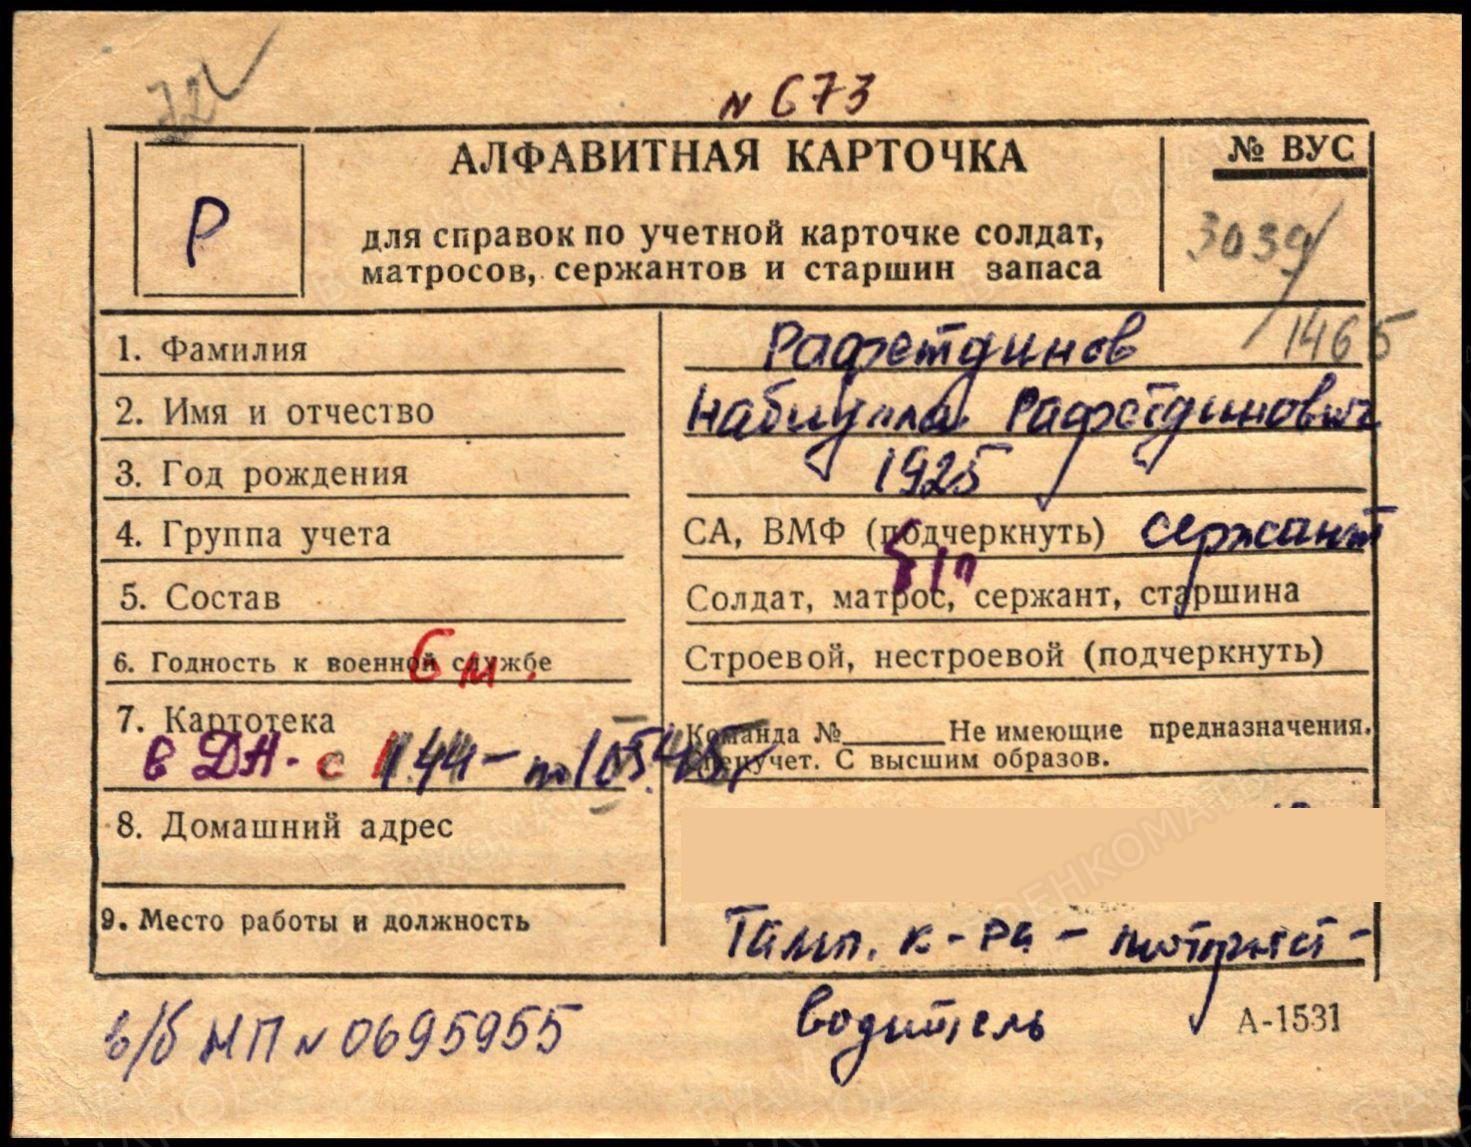 N 673
АЛФАВИТНАЯ КАРТОЧКА
№ ВУС
Р
для справок по учетной карточке солдат,
матросов, сержантов и старшин запаса
3039/
1465
1. Фамилия
Рафетдинов
2. Имя и отчество
Набиулла Рафетдинович
3. Год рождения
1925
4. Группа учета
СА, ВМФ (подчеркнуть) сержант
б/п
5. Состав
Солдат, матрос, сержант, старшина
6. Годность к военной службе
Строевой, нестроевой (подчеркнуть)
7. Картотека
Команда № Не имеющие предназначения.
Спецучет. С высшим образов.
в ДА. с 1 44 - по 1 05.45 г
8. Домашний адрес
9. Место работы и должность
к-ра -
водитель
в/б НП N 0695955
А-1531